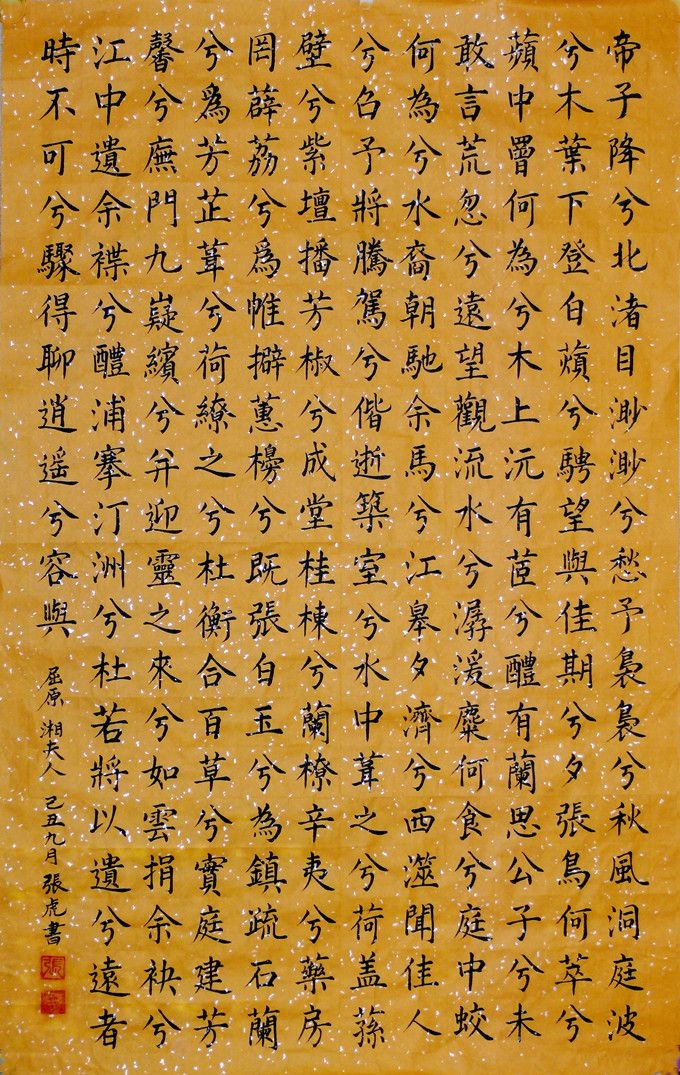 帝子降兮北渚目渺渺兮愁予裊裊兮秋風洞庭波
兮木葉下登白薠兮騁望與佳期兮夕張鳥何萃兮
蘋中罾何為兮木上沅有茝兮醴有蘭思公子兮未
敢言荒忽兮遠望觀流水兮潺湲麋何食兮庭中蛟
何為兮水裔朝馳余馬兮江皋夕濟兮西澨聞佳人
兮召予將騰駕兮偕逝築室兮水中葺之兮荷盖蓀
壁兮紫壇播芳椒兮成堂桂棟兮蘭橑辛夷兮藥房
罔薜荔兮爲帷擗蕙櫋兮既張白玉兮為鎮疏石蘭
兮爲芳芷葺兮荷繚之兮杜衡合百草兮實庭建芳
馨兮廡門九嶷繽兮并迎靈之來兮如雲捐余袂兮
江中遺余褋兮醴浦搴汀洲兮杜若將以遺兮遠者
時不可兮驟得聊逍遥兮容與
屈原 湘夫人 己丑九月 張虎書